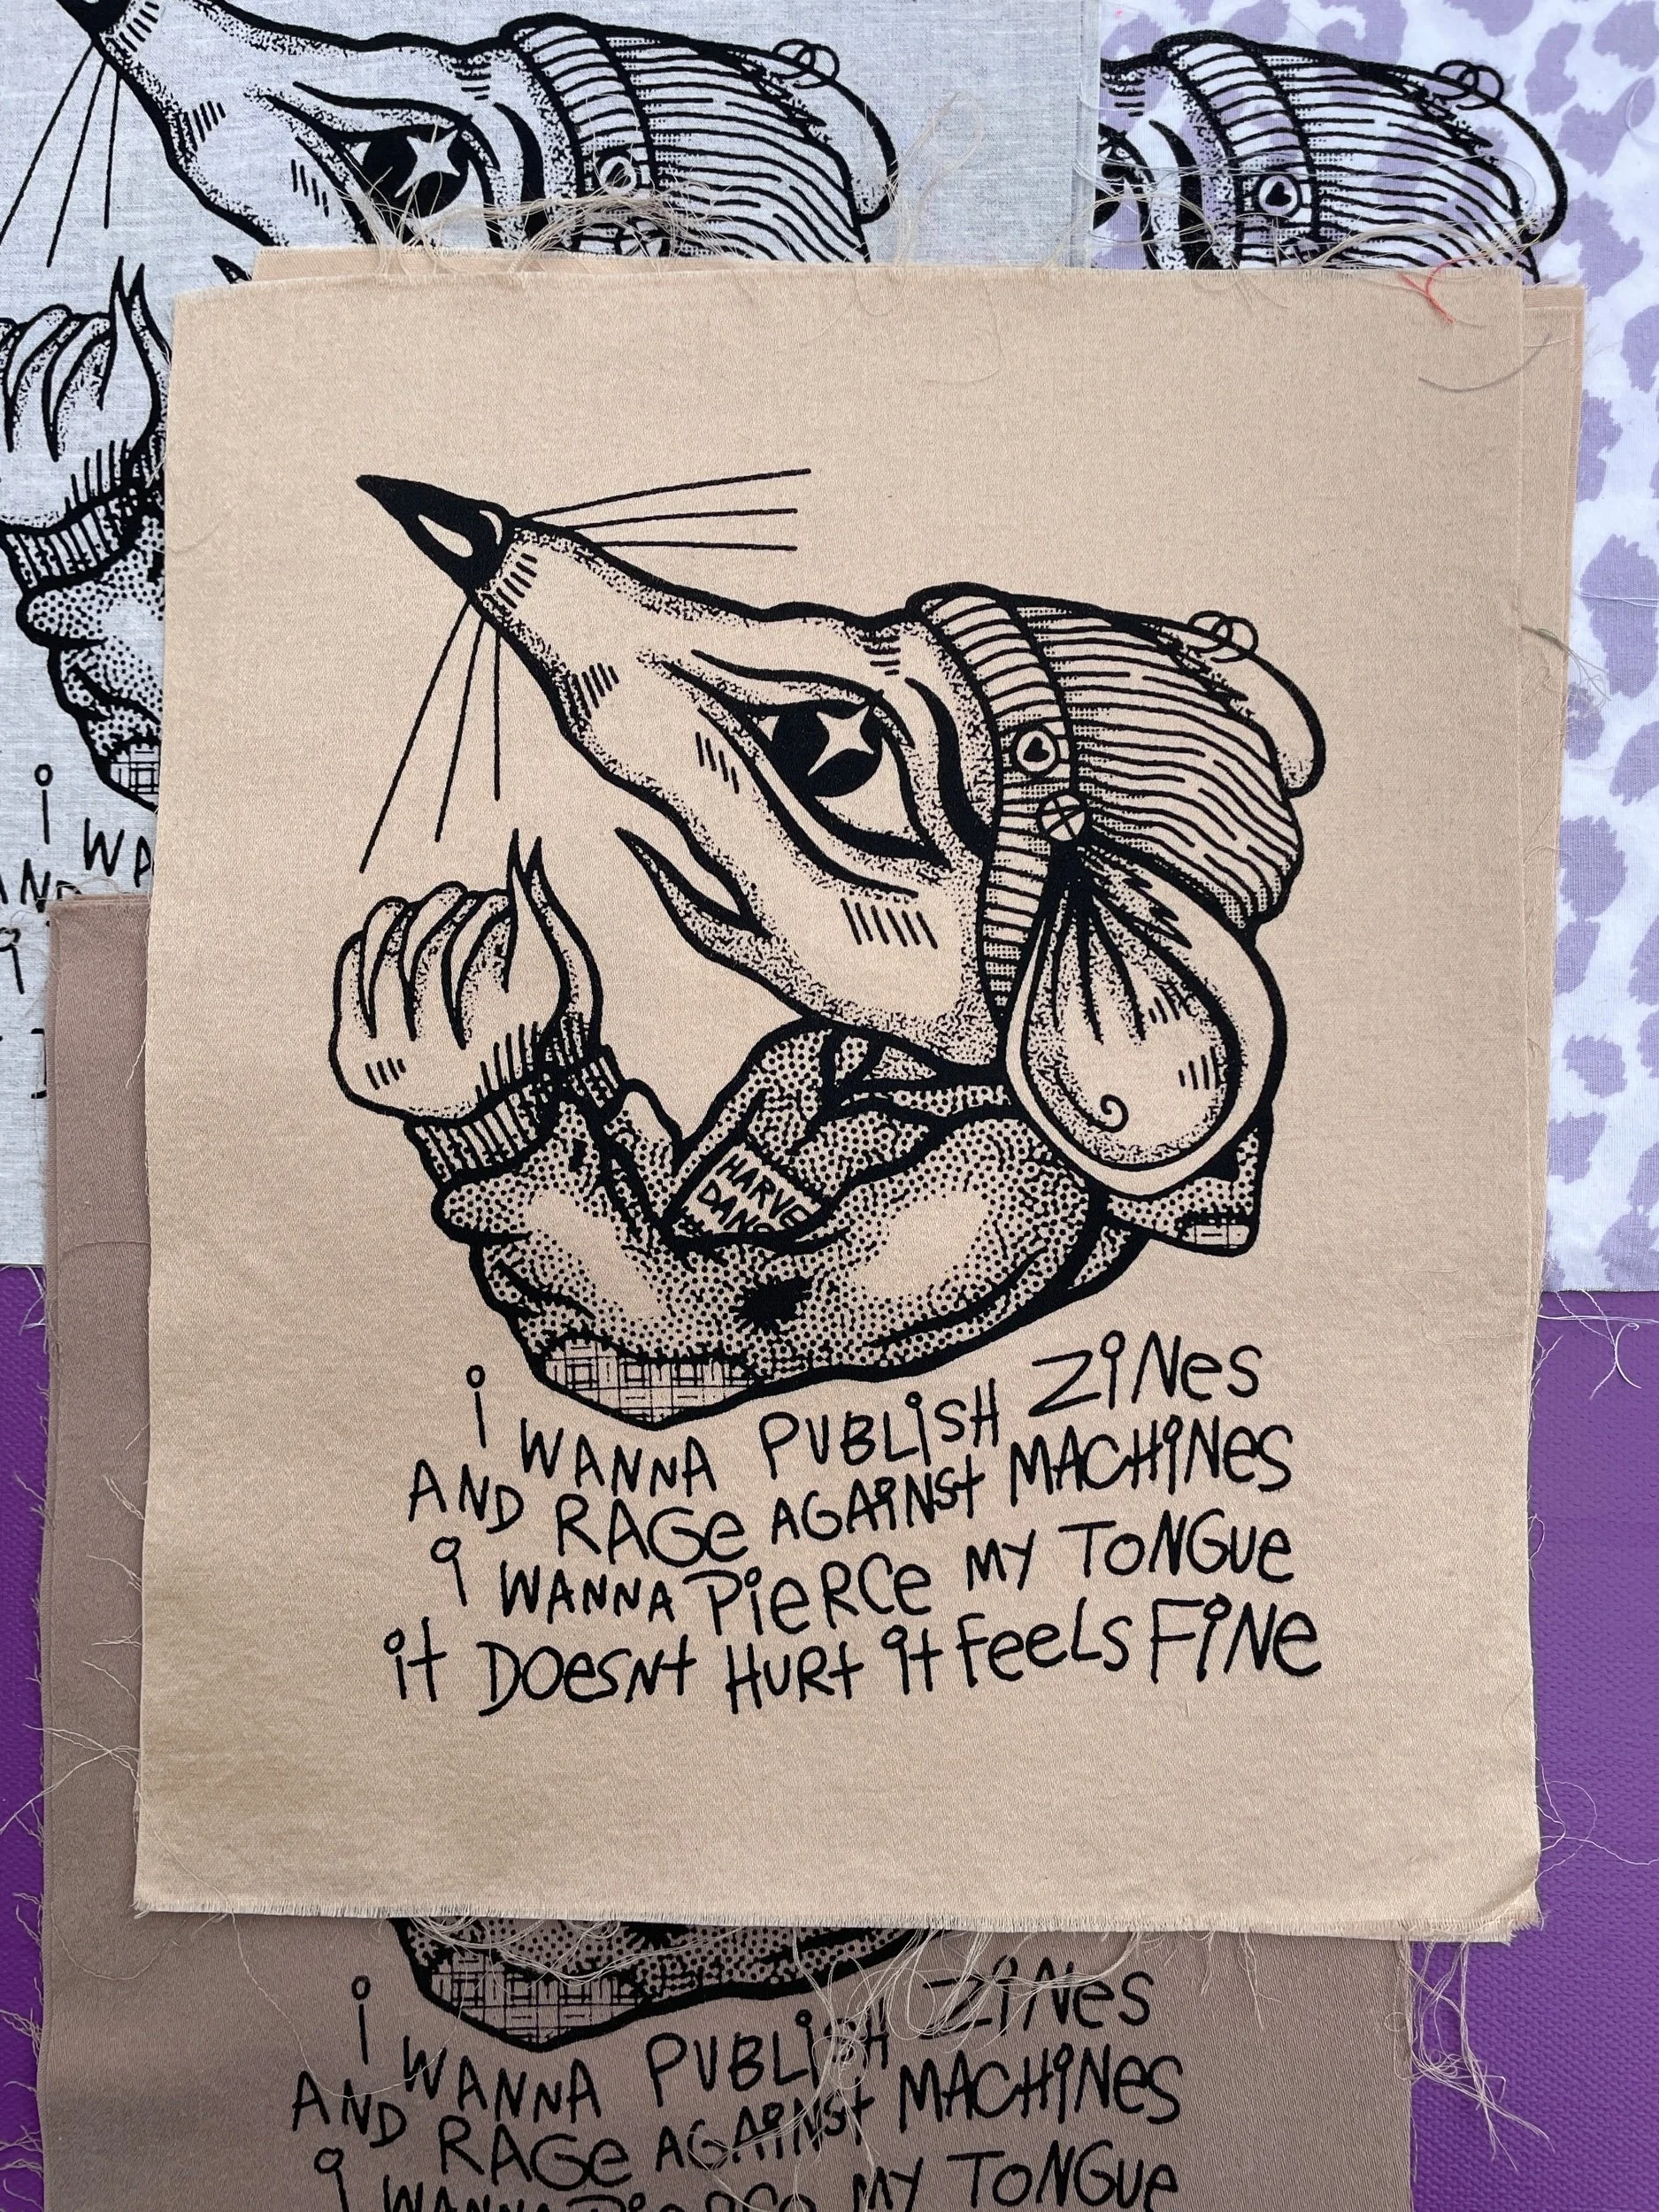 HARVE
DANG
i WANNA PUBLiSH ZiNes
AND RAGe AGAiNSt MACHiNes
i WANNA PieRCe MY TONGUe
it DOesNt HURt it FeeLS FiNe
i WA
AND
i
i WANNA PUBLiSH ZiNes
AND RAGe AGAiNSt MACHiNes
i WANNA PieRCe MY TONGUe